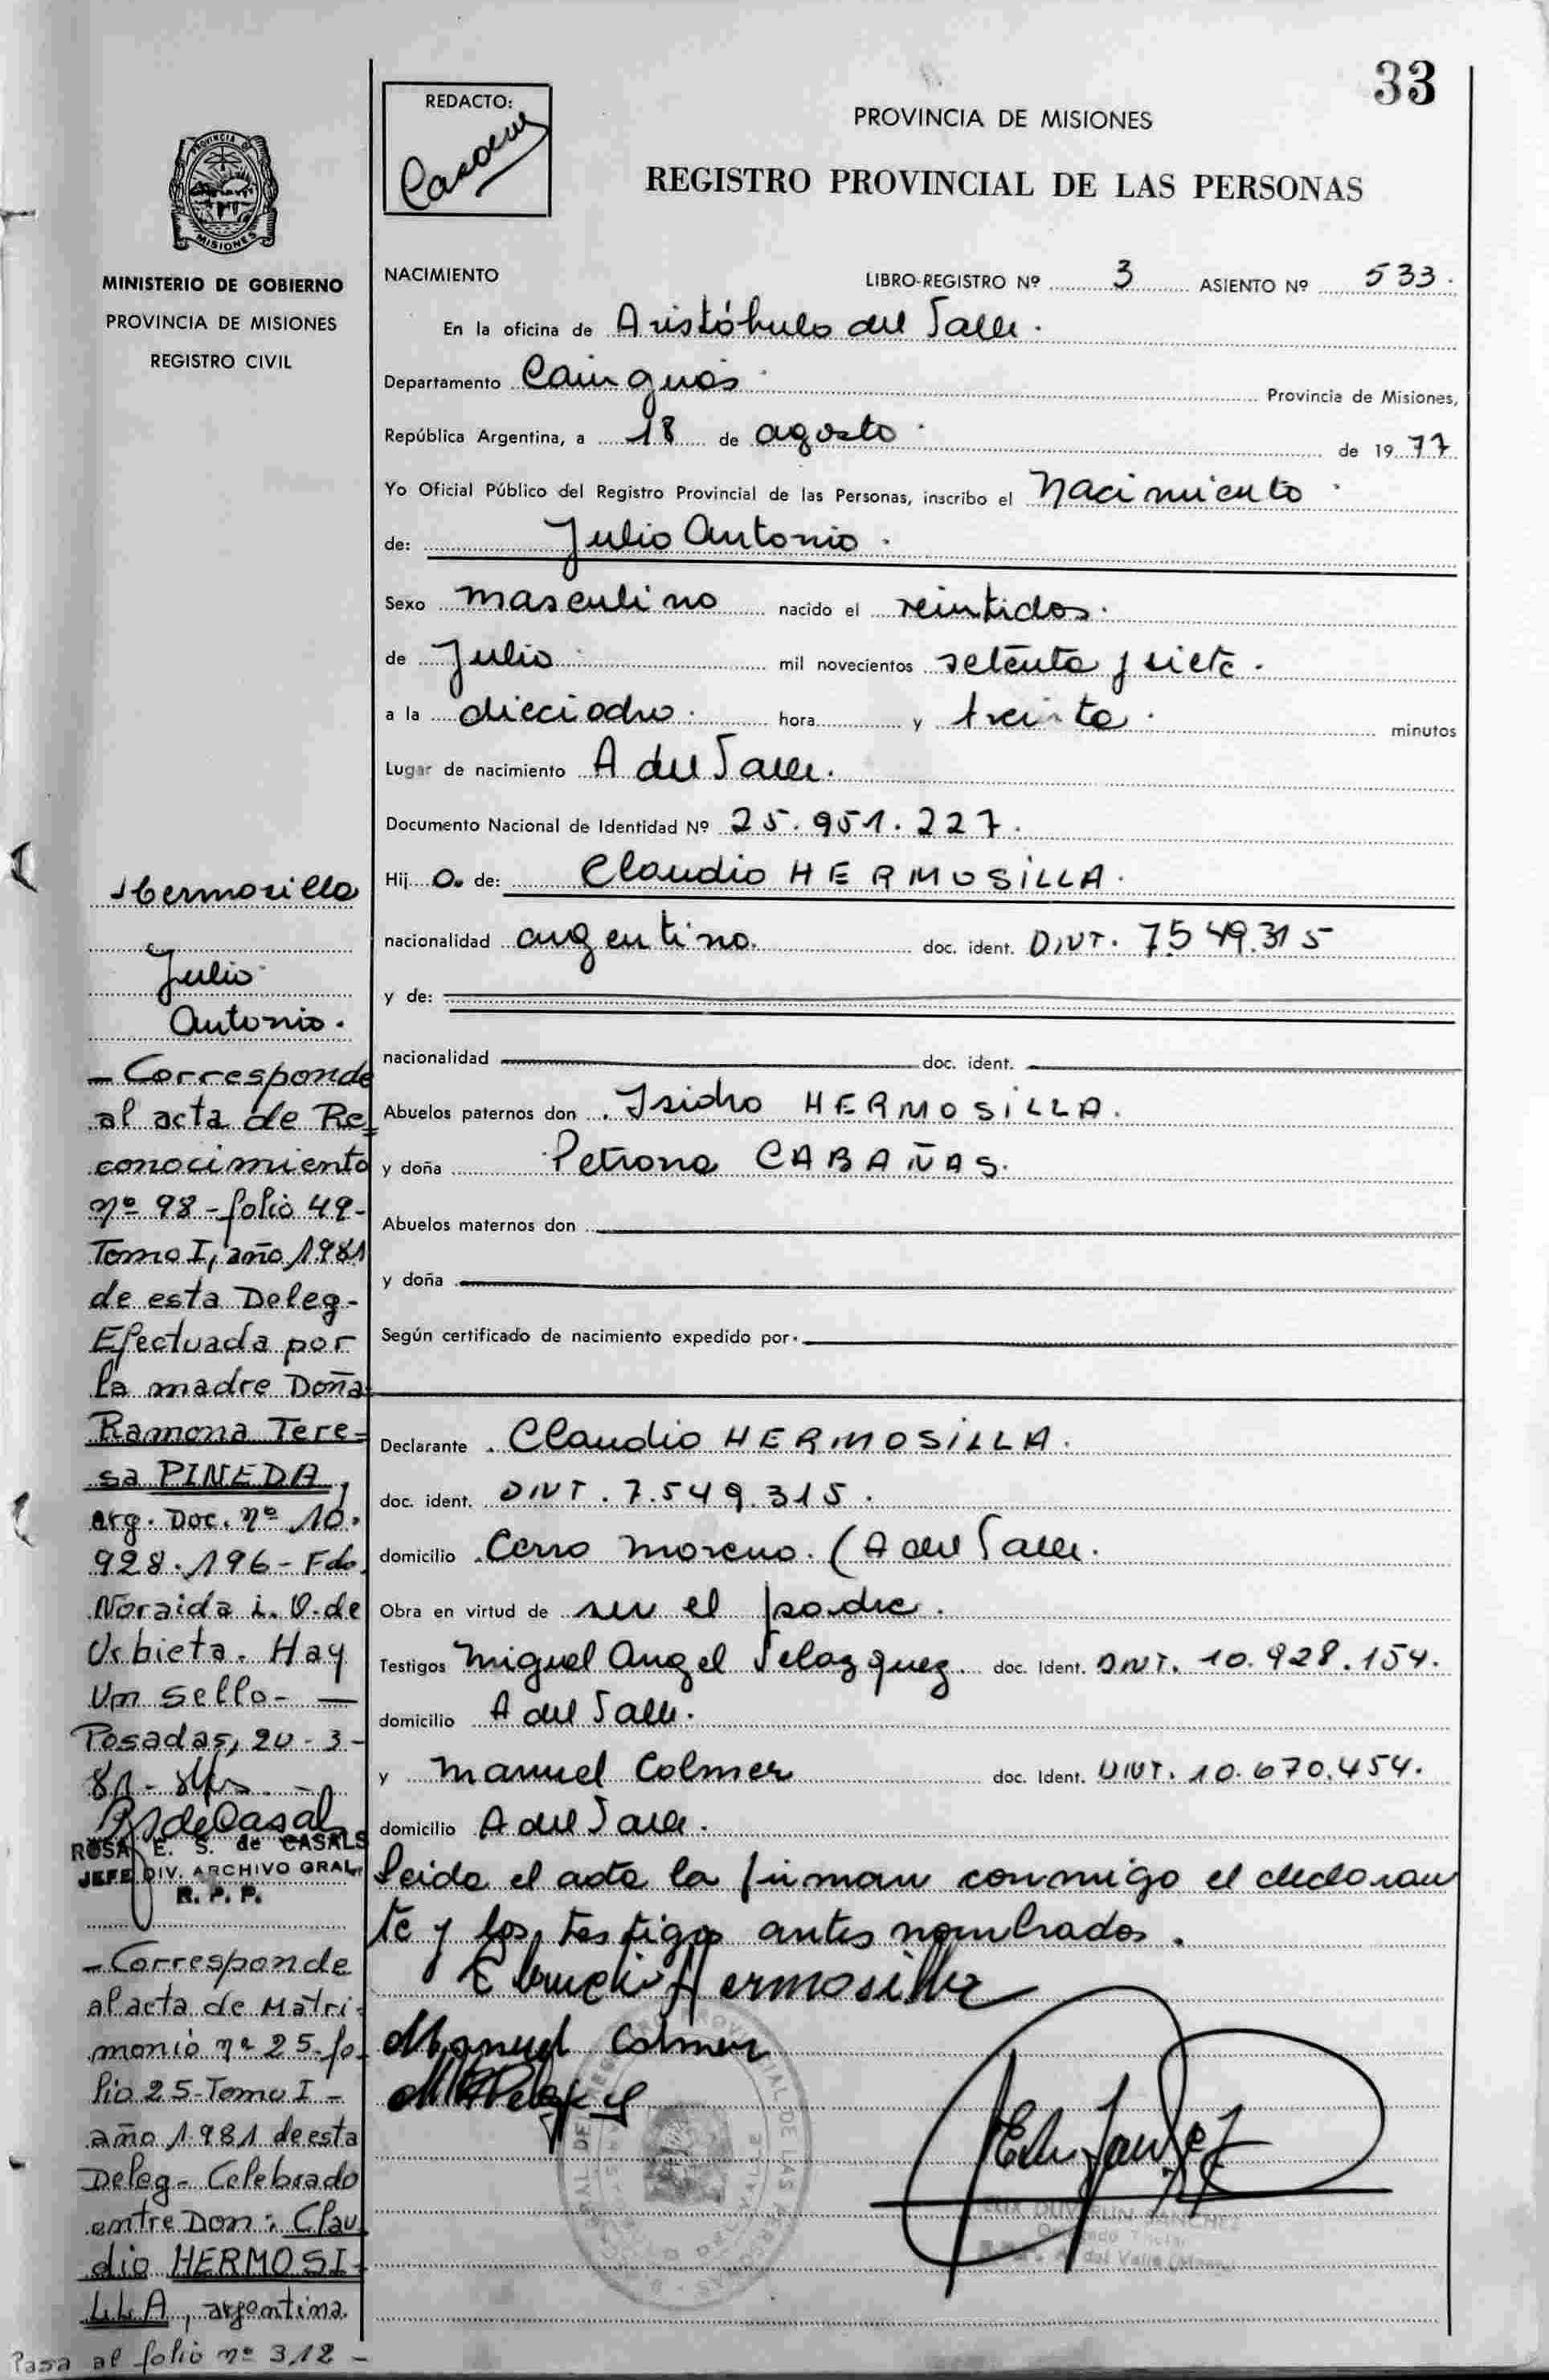 33
REDACTO:
PROVINCIA DE MISIONES
REGISTRO PROVINCIAL DE LAS PERSONAS
PROVINCIA DE
MISIONES
MINISTERIO DE GOBIERNO
PROVINCIA DE MISIONES
REGISTRO CIVIL
NACIMIENTO LIBRO-REGISTRO Nº 3 ASIENTO Nº 533.
En la oficina de Aristóbulo del Valle.
Departamento Cainguás. Provincia de Misiones,
República Argentina, a 18 de agosto. de 1977
Yo Oficial Público del Registro Provincial de las Personas, inscribo el Nacimiento.
de: Julio Antonio.
Sexo masculino nacido el veintidos.
de Julio mil novecientos setenta y siete.
a la dieciocho. hora y treinta. minutos
Lugar de nacimiento A del Valle.
Documento Nacional de Identidad Nº 25.951.227.
Hij o. de: Claudio HERMOSILLA.
nacionalidad argentino. doc. ident. D.N.I. 7.549.315
y de:
nacionalidad doc. ident.
Abuelos paternos don Isidro HERMOSILLA.
y doña Petrona CABAÑAS.
Abuelos maternos don
y doña
Según certificado de nacimiento expedido por
Declarante Claudio HERMOSILLA.
doc. ident. DNI. 7.549.315.
domicilio Cerro Moreno. (A del Valle.
Obra en virtud de ser el padre.
Testigos Miguel Angel Velazquez. doc. Ident. DNI. 10.928.154.
domicilio A del Valle.
y Manuel Colmer doc. Ident. DNI. 10.670.454.
domicilio A del Valle.
Leida el acta la firman conmigo el declaran
te y los testigos antes nombrados.
Claudio Hermosilla
Manuel Colmer
Hermosilla
Julio
Antonio.
- Corresponde
al acta de Re=
conocimiento
nº 98 - folio 49-
Tomo I, año 1981
de esta Deleg-
Efectuada por
la madre Doña
Ramona Tere=
sa PINEDA,
arg. Doc. nº 10.
928.196 - Fdo.
Noraida i. O. de
Urbieta. Hay
Un sello- —
Posadas, 20-3-
81-
ROSA E. S. de CASALS
JEFE DIV. ARCHIVO GRAL.
R. P. P.
- Corresponde
al acta de Matri-
monio nº 25-fo-
lio 25-Tomo I -
año 1981 de esta
Deleg- Celebrado
entre Don: Clau
dio HERMOSI-
LLA, argentina.
Pasa al folio nº 312 -